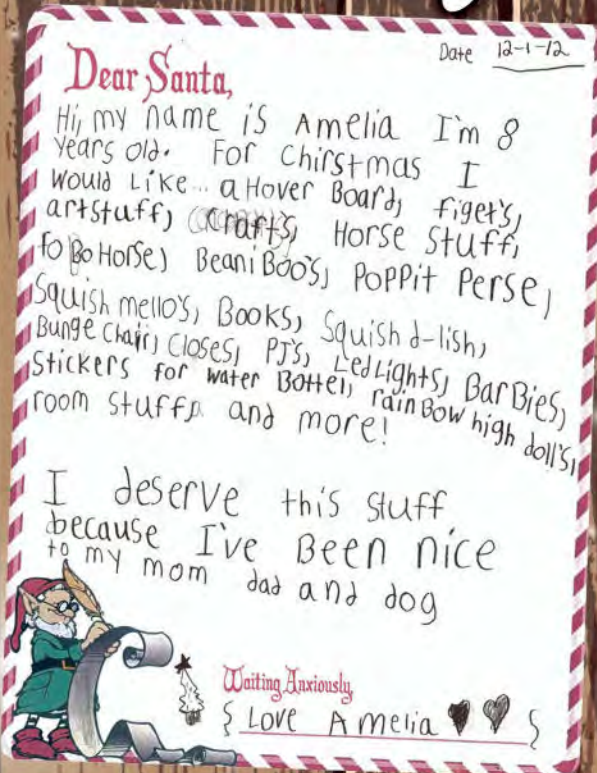 Date 12-1-12
Dear Santa,
Hi, my name is Amelia I'm 8
years old. For Chirstmas I
would Like... a Hover Board, figet's,
artstuff, Crafts, Horse Stuff,
fo Bo Horse, Beani Boo's, PoPPit Perse,
Squish mello's, Books, Squish d-lish,
Bunge Chair, Closes, PJ's, Led Lights, BarBies,
Stickers for water Bottel, rainBow high doll's,
room Stuff, and more!
I deserve this stuff
because I've Been nice
to my mom dad and dog
Waiting Anxiously,
Love Amelia